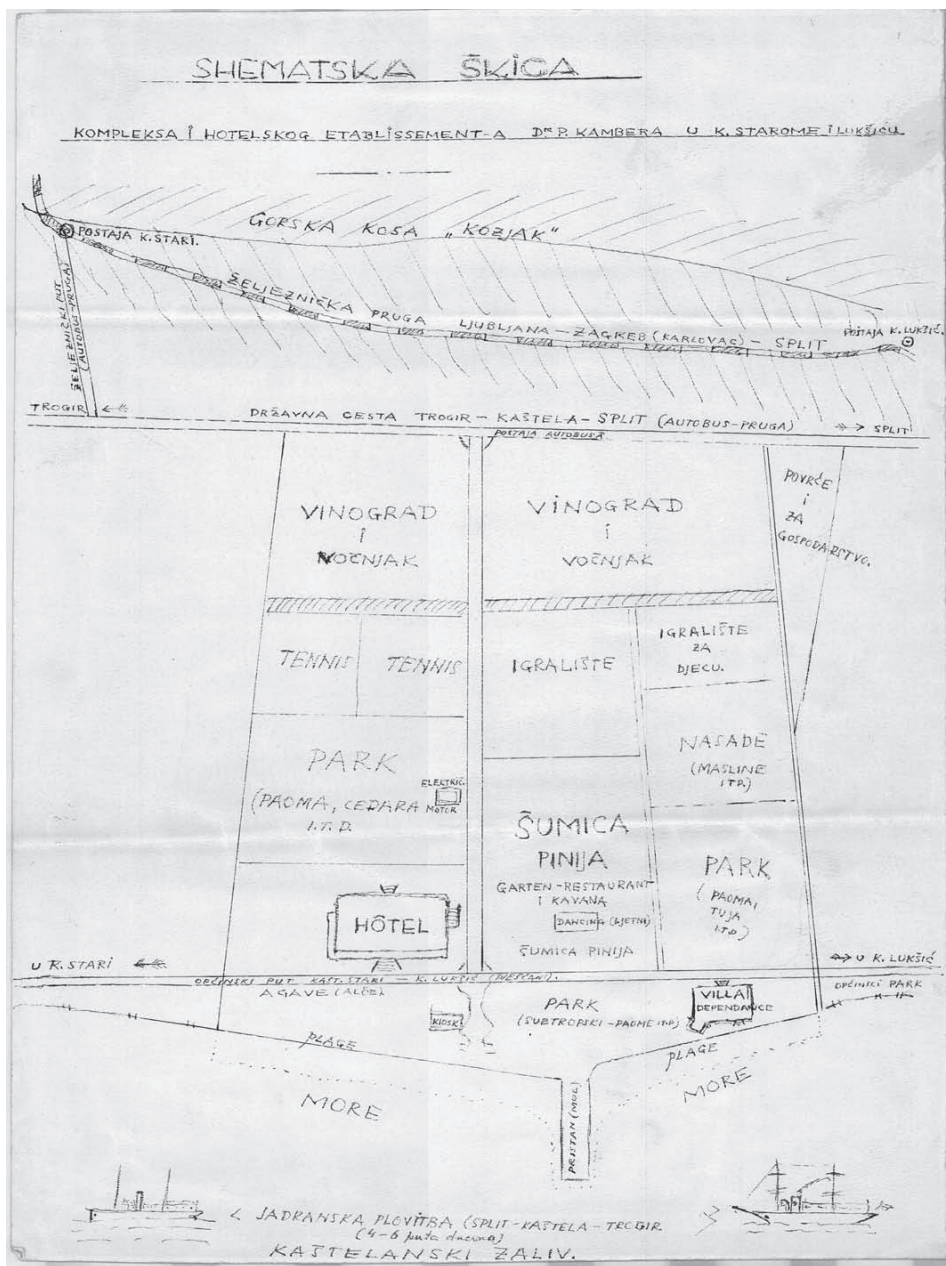 SHEMATSKA ŠKICA
KOMPLEKSA I HOTELSKOG ETABLISSEMENT-A DR P. KAMBERA U K. STAROME I LUKŠIĆU
GORSKA KOSA „KOZJAK"
POSTAJA K. ŠTARI.
ŽELJEZNIČKI PUT
(AUTOBUS-PRUGA)
ŽELJEZNIČKA PRUGA LJUBLJANA - ZAGREB (KARLOVAC) - SPLIT
POSTAJA K. LUKŠIĆ.
TROGIR
DRŽAVNA CESTA TROGIR - KAŠTELA - SPLIT (AUTOBUS-PRUGA)
SPLIT
POSTAJA AUTOBUSA
VINOGRAD
i
VOĆNJAK
VINOGRAD
i
VOĆNJAK
POVRĆE
i
ZA
GOSPODARSTVO.
TENNIS
TENNIS
IGRALIŠTE
IGRALIŠTE
ZA
DJECU.
PARK
(PAOMA, CEDARA
I.T.D.
ELECTRIC.
MOTOR
NASADE
(MASLINE
ITD.)
ŠUMICA
PINIJA
GARTEN-RESTAURANT
I KAVANA
DANCING (LJETNI)
ŠUMICA PINIJA
PARK
(PAOMA,
TUJA
ITD.)
HÔTEL
U K. STARI
U K. LUKŠIĆ
OPĆINSKI PUT KAŠT. STARI - K. LUKŠIĆ
AGAVE (ALOE)
KIOSK
PARK
(SUBTROPSKI-PAOME ITD)
VILLA
DEPENDANCE
OPĆINSKI PARK
PLAGE
PLAGE
MORE
MORE
PRISTAN (MOL)
< JADRANSKA PLOVITBA (SPLIT-KAŠTELA-TROGIR
(4-6 puta dnevno)
KAŠTELANSKI ZALIV.